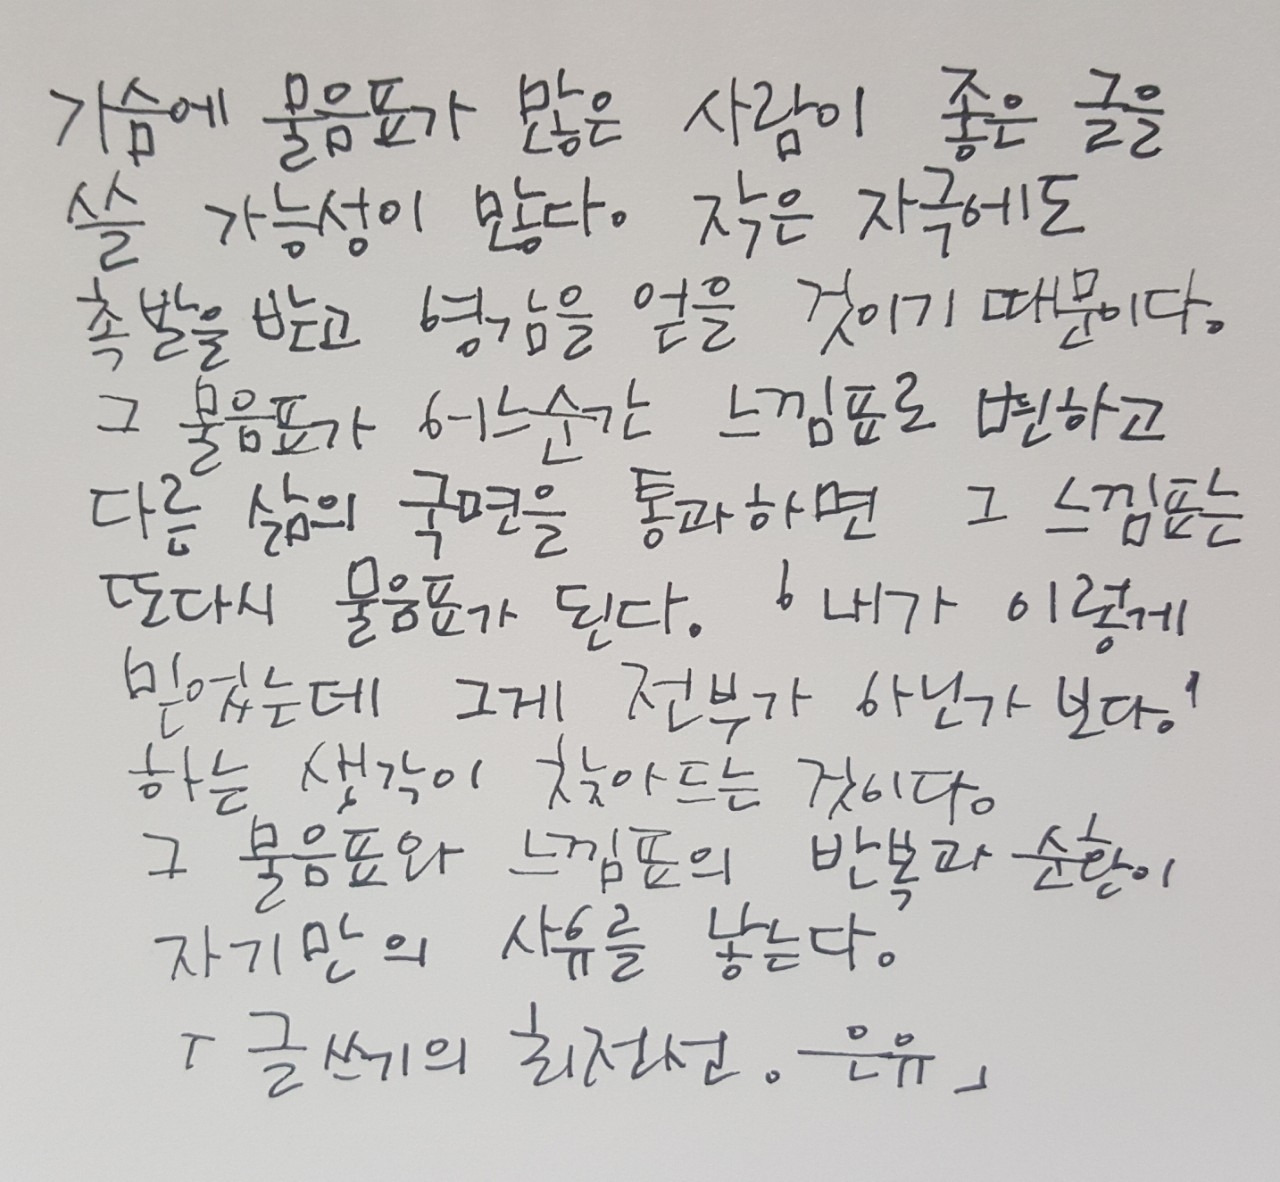 가슴에 물음표가 많은 사람이 좋은 글을
쓸 가능성이 많다. 작은 자극에도
촉발을 받고 영감을 얻을 것이기 때문이다.
그 물음표가 어느순간 느낌표로 변하고
다른 삶의 국면을 통과하면 그 느낌표는
또다시 물음표가 된다. '내가 이렇게
믿었는데 그게 전부가 아닌가 보다.'
하는 생각이 찾아드는 것이다.
그 물음표와 느낌표의 반복과 순환이
자기만의 사유를 낳는다.
「글쓰기의 최전선. 은유」